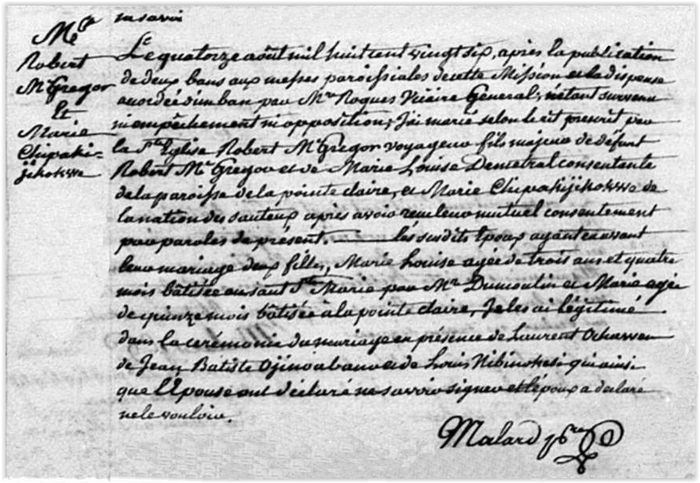 ne savoir
M. C.
Robert
McGregor
&
Marie
Chipaki-
jikokwe
Le quatorze août mil huit cent vingt six, après la publication
de deux bans aux messes paroissiales de cette Mission et la dispense
accordée d'un ban par Mr. Roques Vicaire General; n'étant survenu
ni empêchement ni opposition; J'ai marié selon le rit prescrit par
la Ste Eglise Robert McGregor voyageur fils majeur de défunt
Robert McGregor et de Marie Louise Demetral consentante
de la paroisse de la pointe claire, et Marie Chipakijikokwe de
la nation des sauteux après avoir reçu leur mutuel consentement
par paroles de présent. — les susdits Epoux ayant eu avant
leur mariage deux filles, Marie Louise agée de trois ans et quatre
mois bâtisée au saut Ste Marie par Mr. Dumoulin et Marie agée
de quinze mois bâtisée à la pointe claire, Je les ai légitimé
dans la cérémonie du mariage en présence de Laurent
de Jean Batiste Ojinoabano & de Louis Nibinokesi qui ainsi
que l'Epouse ont déclaré ne savoir signer et l'époux a déclaré
ne le vouloir.
Malard ptre